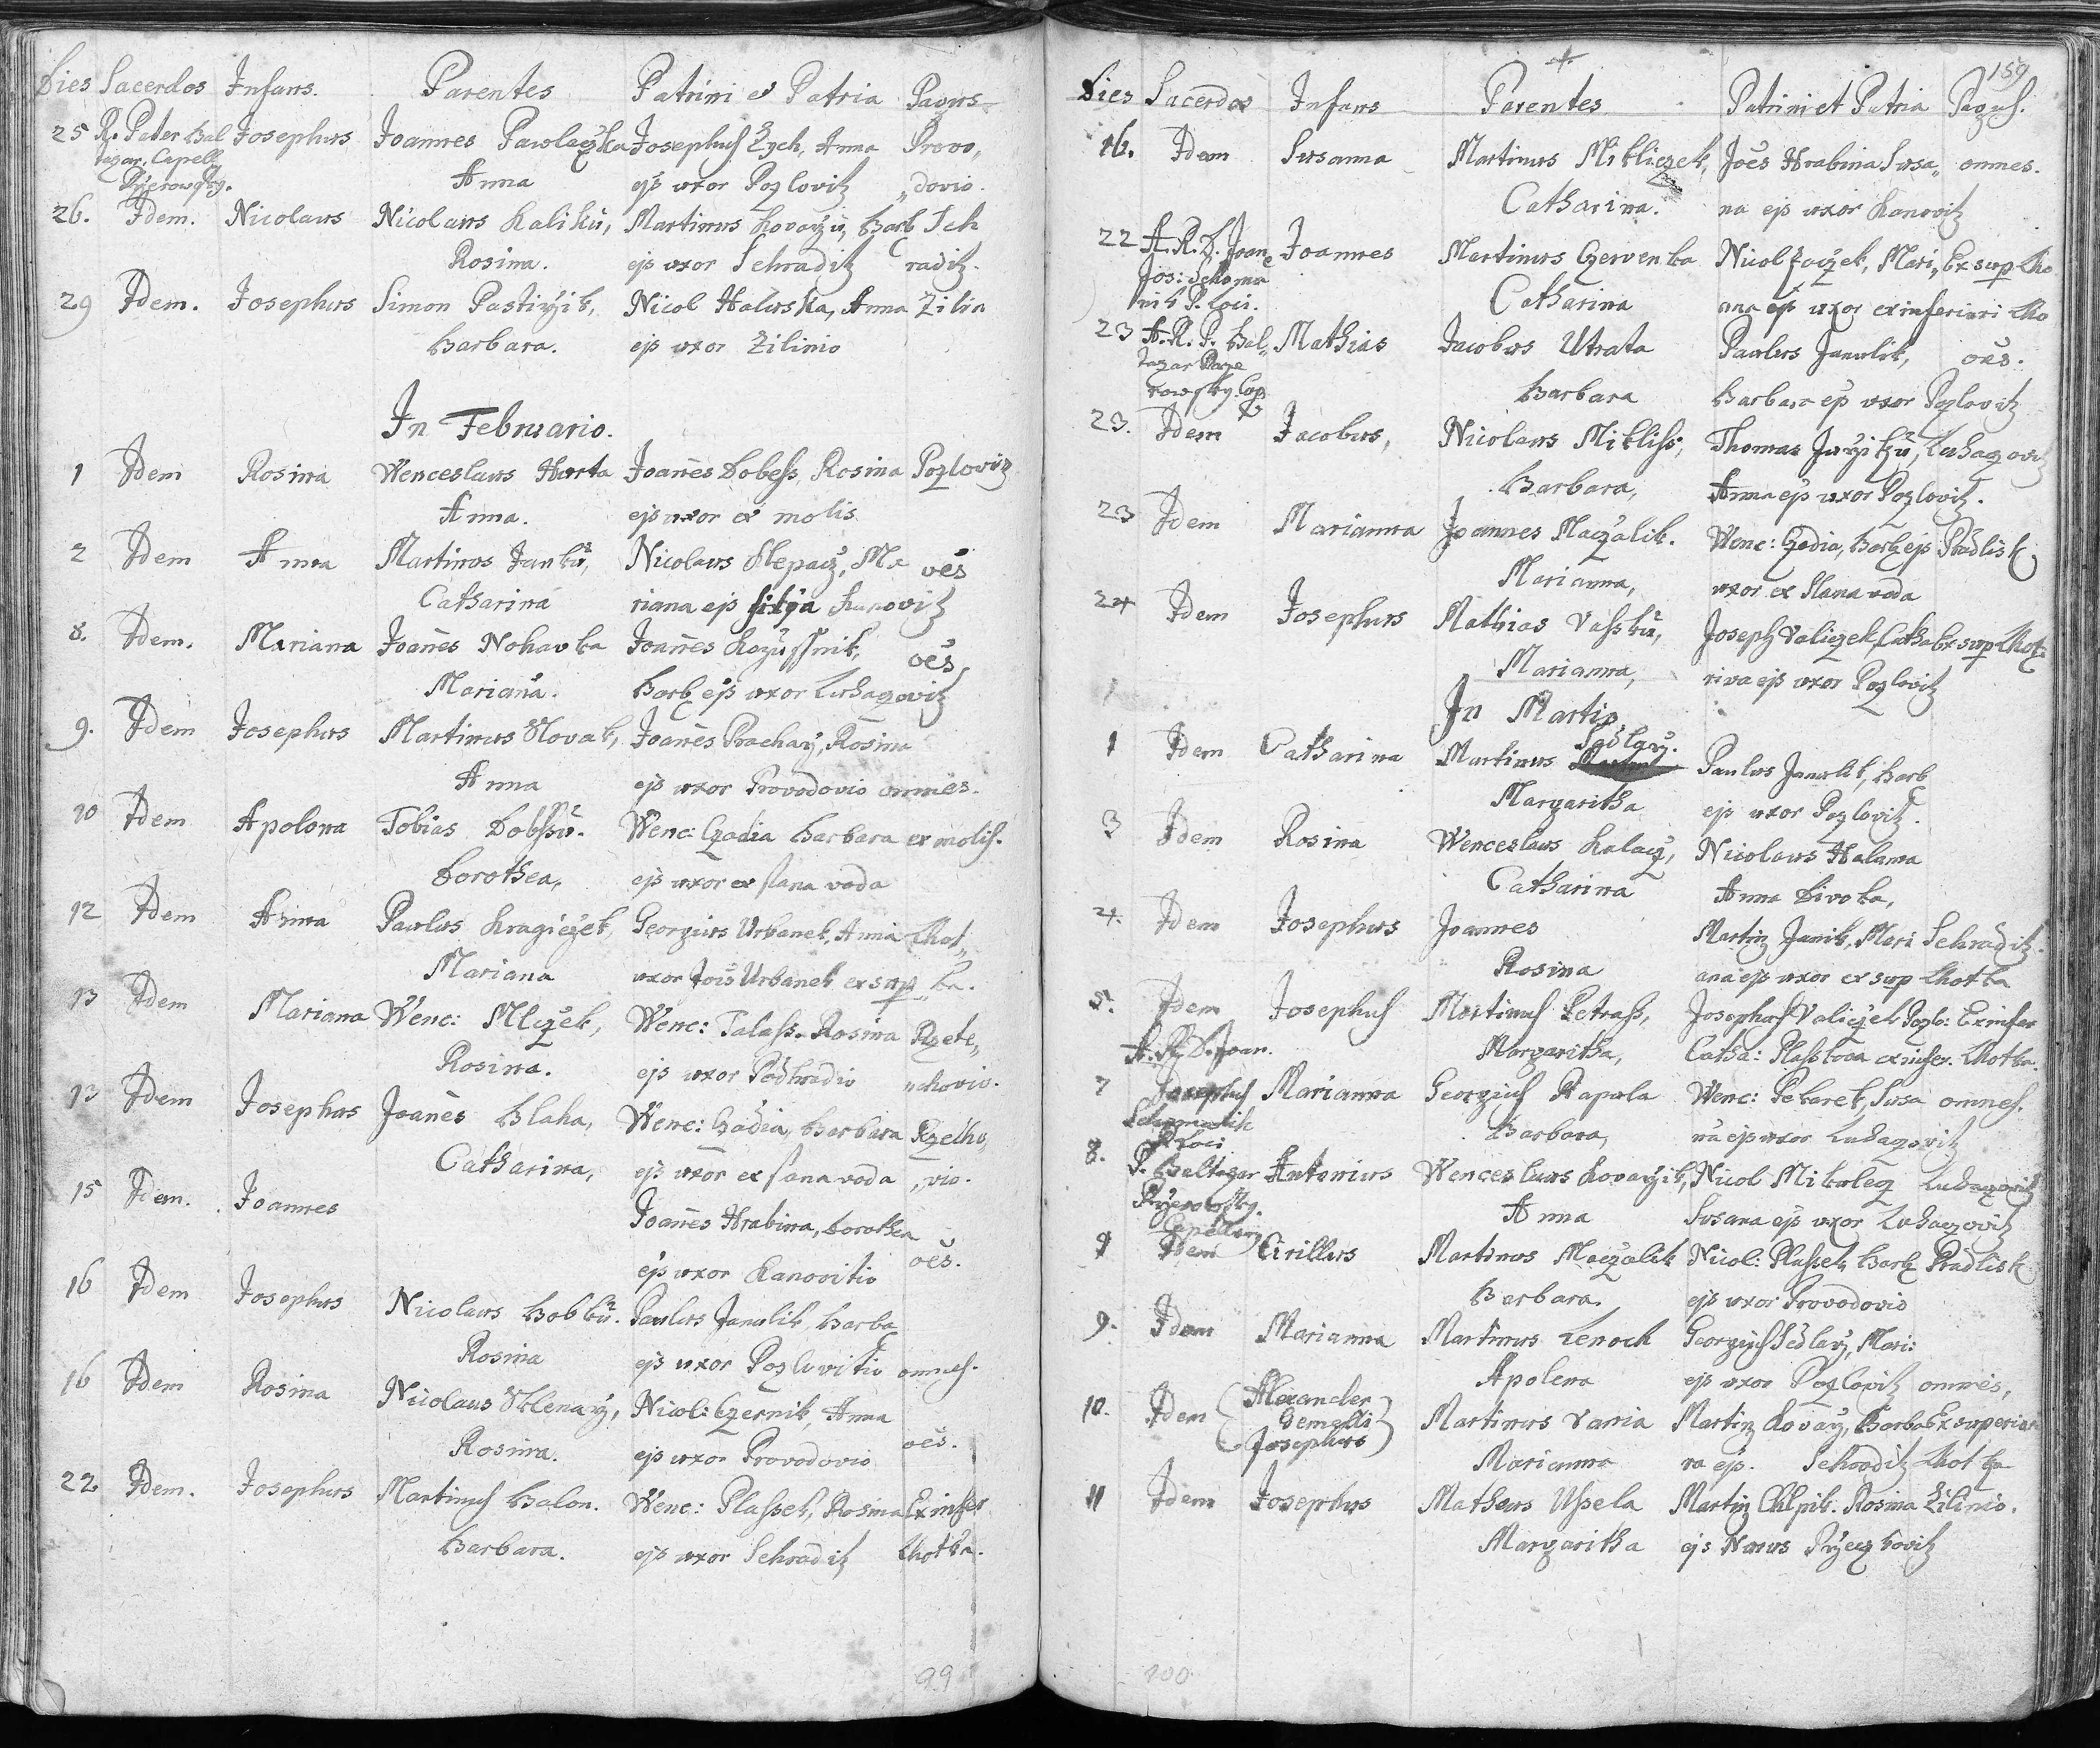 Dies Sacerdos Infans. Parentes Patrini et Patria Pagus
25 R. Pater Bal Josephus Joannes Pawlaczka Josephus Zych, Anna Provo„
tazar. Capell. Anna ejs uxor Pozlovitz „dovio.
26. Idem. Nicolaus Nicolaus Kaliku, Martinus Kovarzu, Barb Seh
Rosina. ejs uxor Sehraditz raditz.
29 Idem. Josephus Simon Pastirzik, Nicol Haluska, Anna Zilin
Barbara. ejs uxor Zilinio
In Februario.
1 Idem Rosina Wenceslaus Hurta Joanes Dobess, Rosina Pozloviz
Anna. ejs uxor ex molis
2 Idem Anna Martinus Janku, Nicolaus Slepacz, Ma oes
Catharina riana ejs Kanovitz
8. Idem. Mariana Joanes Nohavka Joanes Kozussnik, oes,
Mariana. Barb ejs uxor Luhazovitz
9. Idem Josephus Martinus Slovak, Joanes Pracharz, Rosina
Anna ejs uxor Provodovio omnes.
10 Idem Apolona Tobias Dobssu. Wenc: Czadia Barbara ex molis.
Dorothea, ejs uxor ex slana voda
12 Idem Anna Paulus Kragiczek, Georgius Urbanek, Anna Lhot„
Mariana uxor Jois Urbanek ex sup „ka.
13 Idem Mariana Wenc: Mlczek, Wenc: Talass. Rosina Rzete„
Rosina. ejs uxor Podhradio „chovio.
13 Idem Josephus Joanes Blaha, Wenc: Czadia, Barbara Rzetho„
Catharina, ejs uxor ex slana voda „vio.
15 Idem. Joannes Joanes Hrabina, Dorothea
ejs uxor Kanovitio oes.
16 Idem Josephus Nicolaus Bobku. Paulus Janulik, Barba
Rosina ejs uxor Pozlovitio omnes.
16 Idem Rosina Nicolaus Sklenarz, Nicol: Czernik, Anna
Rosina. ejs uxor Provodovio oes.
22 Idem. Josephus Martinus Balon. Wenc: Plassek, Rosina Ex infer
Barbara. ejs uxor Sehraditz Lhotka.
99
159
Dies Sacerdos Infans Parentes Patrini et Patria Pagus.
16. Idem Susanna Martinus Mikliczek, Joes Hrabina Susa„ omnes.
Catharina. na ejs uxor Kanovitz
22 A. R. D. Joan Joannes Martinus Czervenka Nicol Zaczek, Mari„ Ex sup Lho
Jos: Catharina ana ejs uxor ex inferiori Lho
nik P. Loci.
23 A. R. P. Bal„ Mathias Jacobus Utrata Paulus Janulik, oes.
tazar Barbara Barbara ejs uxor Pozlovitz
23. Idem Jacobus, Nicolaus Mikliss, Thomas Luhazovitz
Barbara, Anna ejs uxor Pozlovitz.
23 Idem Marianna Joannes Maczalik. Wenc: Czadia, Barb ejs Pradlisk
Marianna, uxor ex slana voda
24 Idem Josephus Mathias Vassku, Joseph Valiczek, Catha Ex sup Lhot
Marianna, rina ejs uxor Pozlovitz
In Martio
Sedlarz.
1 Idem Catharina Martinus Paulus Janulik, Barb
Margaritha ejs uxor Pozlovitz.
3 Idem Rosina Wenceslaus Kalacz, Nicolaus Halama
Catharina Anna Divoka,
4. Idem Josephus Joannes Martin Janik, Mari Sehraditz.
Rosina ana ejs uxor ex sup Lhotka
5. Idem Josephus Martinus Petrass, Josephus Valiczek Pozlo: Ex infer
A. R. D. Joan. Margaritha, Catha: Plasskova ex infer. Lhotka.
7 Josephus Marianna Georgius Rapula Wenc: Pekarek, Susa omnes.
P Loci Barbara, na ejs uxor Luhazovitz
8. P. Baltazar Antonius Wenceslaus Kovarzik, Nicol Mikulez Luhazovitz
Anna Susana ejs uxor Luhazovitz
9 Idem Cirillus Martinus Maczalik Nicol: Plassek Barb Pradlisk
Barbara. ejs uxor Provodovio
9. Idem Marianna Martinus Lenoch Georgius Sedlarz, Mari:
Apolena ejs uxor Pozlovitz omnes,
10. Idem Alexander Gemelli Josephus Martinus Vania Martin Kovarz, Barba Ex superiar
Marianna ra ejs. Sehraditz Lhotka
11 Idem Josephus Matheus Ussela Martin Chlpik. Rosina Zilinio.
Margaritha ejs Nurus
200